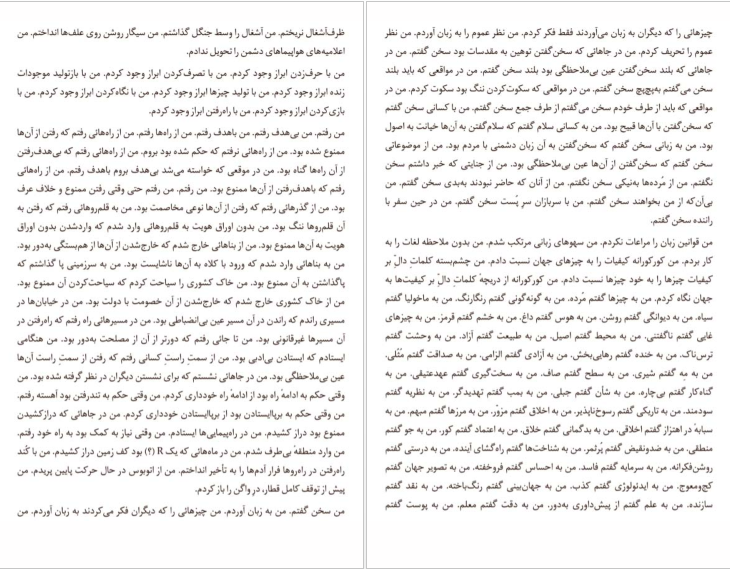 ظرف‌آشغال نریختم. من آشغال را وسط جنگل گذاشتم. من سیگار روشن روی علف‌ها انداختم. من
اعلامیه‌های هواپیماهای دشمن را تحویل ندادم.
من با حرف‌زدن ابراز وجود کردم. من با تصرف‌کردن ابراز وجود کردم. من با بازتولید موجودات
زنده ابراز وجود کردم. من با تولید چیزها ابراز وجود کردم. من با نگاه‌کردن ابراز وجود کردم. من با
بازی‌کردن ابراز وجود کردم. من با راه‌رفتن ابراز وجود کردم.
من رفتم. من بی‌هدف رفتم. من باهدف رفتم. من از راه‌ها رفتم. من از راه‌هائی رفتم که رفتن از آن‌ها
ممنوع شده بود. من از راه‌هائی نرفتم که حکم شده بود بروم. من از راه‌هائی رفتم که بی‌هدف‌رفتن
از آن راه‌ها گناه بود. من در موقعی که خواسته می‌شد بی‌هدف بروم باهدف رفتم. من از راه‌هائی
رفتم که باهدف‌رفتن از آن‌ها ممنوع بود. من رفتم. من رفتم حتی وقتی رفتن ممنوع و خلاف عرف
بود. من از گذرهائی رفتم که رفتن از آن‌ها نوعی مخاصمت بود. من به قلم‌روهائی رفتم که رفتن به
آن قلم‌روها ننگ بود. من بدون اوراق هویت به قلم‌روهائی وارد شدم که واردشدن بدون اوراق
هویت به آن‌ها ممنوع بود. من از بناهائی خارج شدم که خارج‌شدن از آن‌ها از هم‌بستگی به‌دور بود.
من به بناهائی وارد شدم که ورود با کلاه به آن‌ها ناشایست بود. من به سرزمینی پا گذاشتم که
پاگذاشتن به آن ممنوع بود. من خاک کشوری را سیاحت کردم که سیاحت‌کردن آن ممنوع بود.
من از خاک کشوری خارج شدم که خارج‌شدن از آن خصومت با دولت بود. من در خیابان‌ها در
مسیری راندم که راندن در آن مسیر عین بی‌انضباطی بود. من در مسیرهائی راه رفتم که راه‌رفتن در
آن مسیرها غیرقانونی بود. من تا جائی رفتم که دورتر از آن از مصلحت به‌دور بود. من هنگامی
ایستادم که ایستادن بی‌ادبی بود. من از سمتِ راستِ کسانی رفتم که رفتن از سمتِ راست آن‌ها
عین بی‌ملاحظگی بود. من در جاهائی نشستم که برای نشستن دیگران در نظر گرفته شده بود. من
وقتی حکم به ادامهٔ راه بود از ادامهٔ راه خودداری کردم. من وقتی حکم به تندرفتن بود آهسته رفتم.
من وقتی حکم به برپاایستادن بود از برپاایستادن خودداری کردم. من در جاهائی که درازکشیدن
ممنوع بود دراز کشیدم. من در راه‌پیمایی‌ها ایستادم. من وقتی نیاز به کمک بود به راه خود رفتم.
من وارد منطقهٔ بی‌طرف شدم. من در ماه‌هائی که یک R (؟) بود کف زمین دراز کشیدم. من با کُند
راه‌رفتن در راه‌روها فرار آدم‌ها را به تأخیر انداختم. من از اتوبوس در حال حرکت پایین پریدم. من
پیش از توقف کامل قطار، درِ واگن را باز کردم.
من سخن گفتم. من به زبان آوردم. من چیزهائی را که دیگران فکر می‌کردند به زبان آوردم. من
چیزهائی را که دیگران به زبان می‌آوردند فقط فکر کردم. من نظر عموم را به زبان آوردم. من نظر
عموم را تحریف کردم. من در جاهائی که سخن‌گفتن توهین به مقدسات بود سخن گفتم. من در
جاهائی که بلند سخن‌گفتن عین بی‌ملاحظگی بود بلند سخن گفتم. من در مواقعی که باید بلند
سخن می‌گفتم به‌پچ‌پچ سخن گفتم. من در مواقعی که سکوت‌کردن ننگ بود سکوت کردم. من در
مواقعی که باید از طرف خودم سخن می‌گفتم از طرف جمع سخن گفتم. من با کسانی سخن گفتم
که سخن‌گفتن با آن‌ها قبیح بود. من به کسانی سلام گفتم که سلام‌گفتن به آن‌ها خیانت به اصول
بود. من به زبانی سخن گفتم که سخن‌گفتن به آن زبان دشمنی با مردم بود. من از موضوعاتی
سخن گفتم که سخن‌گفتن از آن‌ها عین بی‌ملاحظگی بود. من از جنایتی که خبر داشتم سخن
نگفتم. من از مُرده‌ها به‌نیکی سخن نگفتم. من از آنان که حاضر نبودند به‌بدی سخن گفتم. من
بی‌آن‌که از من بخواهند سخن گفتم. من با سربازان سرِ پُست سخن گفتم. من در حین سفر با
راننده سخن گفتم.
من قوانین زبان را مراعات نکردم. من سهوهای زبانی مرتکب شدم. من بدون ملاحظه لغات را به
کار بردم. من کورکورانه کیفیات را به چیزهای جهان نسبت دادم. من چشم‌بسته کلماتِ دالّ بر
کیفیات چیزها را به خود چیزها نسبت دادم. من کورکورانه از دریچهٔ کلماتِ دالّ بر کیفیت‌ها به
جهان نگاه کردم. من به چیزها گفتم مُرده. من به گونه‌گونی گفتم رنگارنگ. من به ماخولیا گفتم
سیاه. من به دیوانگی گفتم روشن. من به هوس گفتم داغ. من به خشم گفتم قرمز. من به چیزهای
غایی گفتم ناگفتنی. من به محیط گفتم اصیل. من به طبیعت گفتم آزاد. من به وحشت گفتم
ترس‌ناک. من به خنده گفتم رهایی‌بخش. من به آزادی گفتم الزامی. من به صداقت گفتم مَثَلی.
من به مِه گفتم شیری. من به سطح گفتم صاف. من به سخت‌گیری گفتم عهدعتیقی. من به
گناه‌کار گفتم بی‌چاره. من به شأن گفتم جبلی. من به بمب گفتم تهدیدگر. من به نظریه گفتم
سودمند. من به تاریکی گفتم رسوخ‌ناپذیر. من به اخلاق گفتم مزوّر. من به مرزها گفتم مبهم. من به
سبابهٔ در اهتزاز گفتم اخلاقی. من به بدگمانی گفتم خلاق. من به اعتماد گفتم کور. من به جو گفتم
منطقی. من به ضدونقیض گفتم پُرثمر. من به شناخت‌ها گفتم راه‌گشای آینده. من به درستی گفتم
روشن‌فکرانه. من به سرمایه گفتم فاسد. من به احساس گفتم فروخفته. من به تصویر جهان گفتم
کج‌ومعوج. من به ایدئولوژی گفتم کذب. من به جهان‌بینی گفتم رنگ‌باخته. من به نقد گفتم
سازنده. من به علم گفتم از پیش‌داوری به‌دور. من به دقت گفتم معلم. من به پوست گفتم